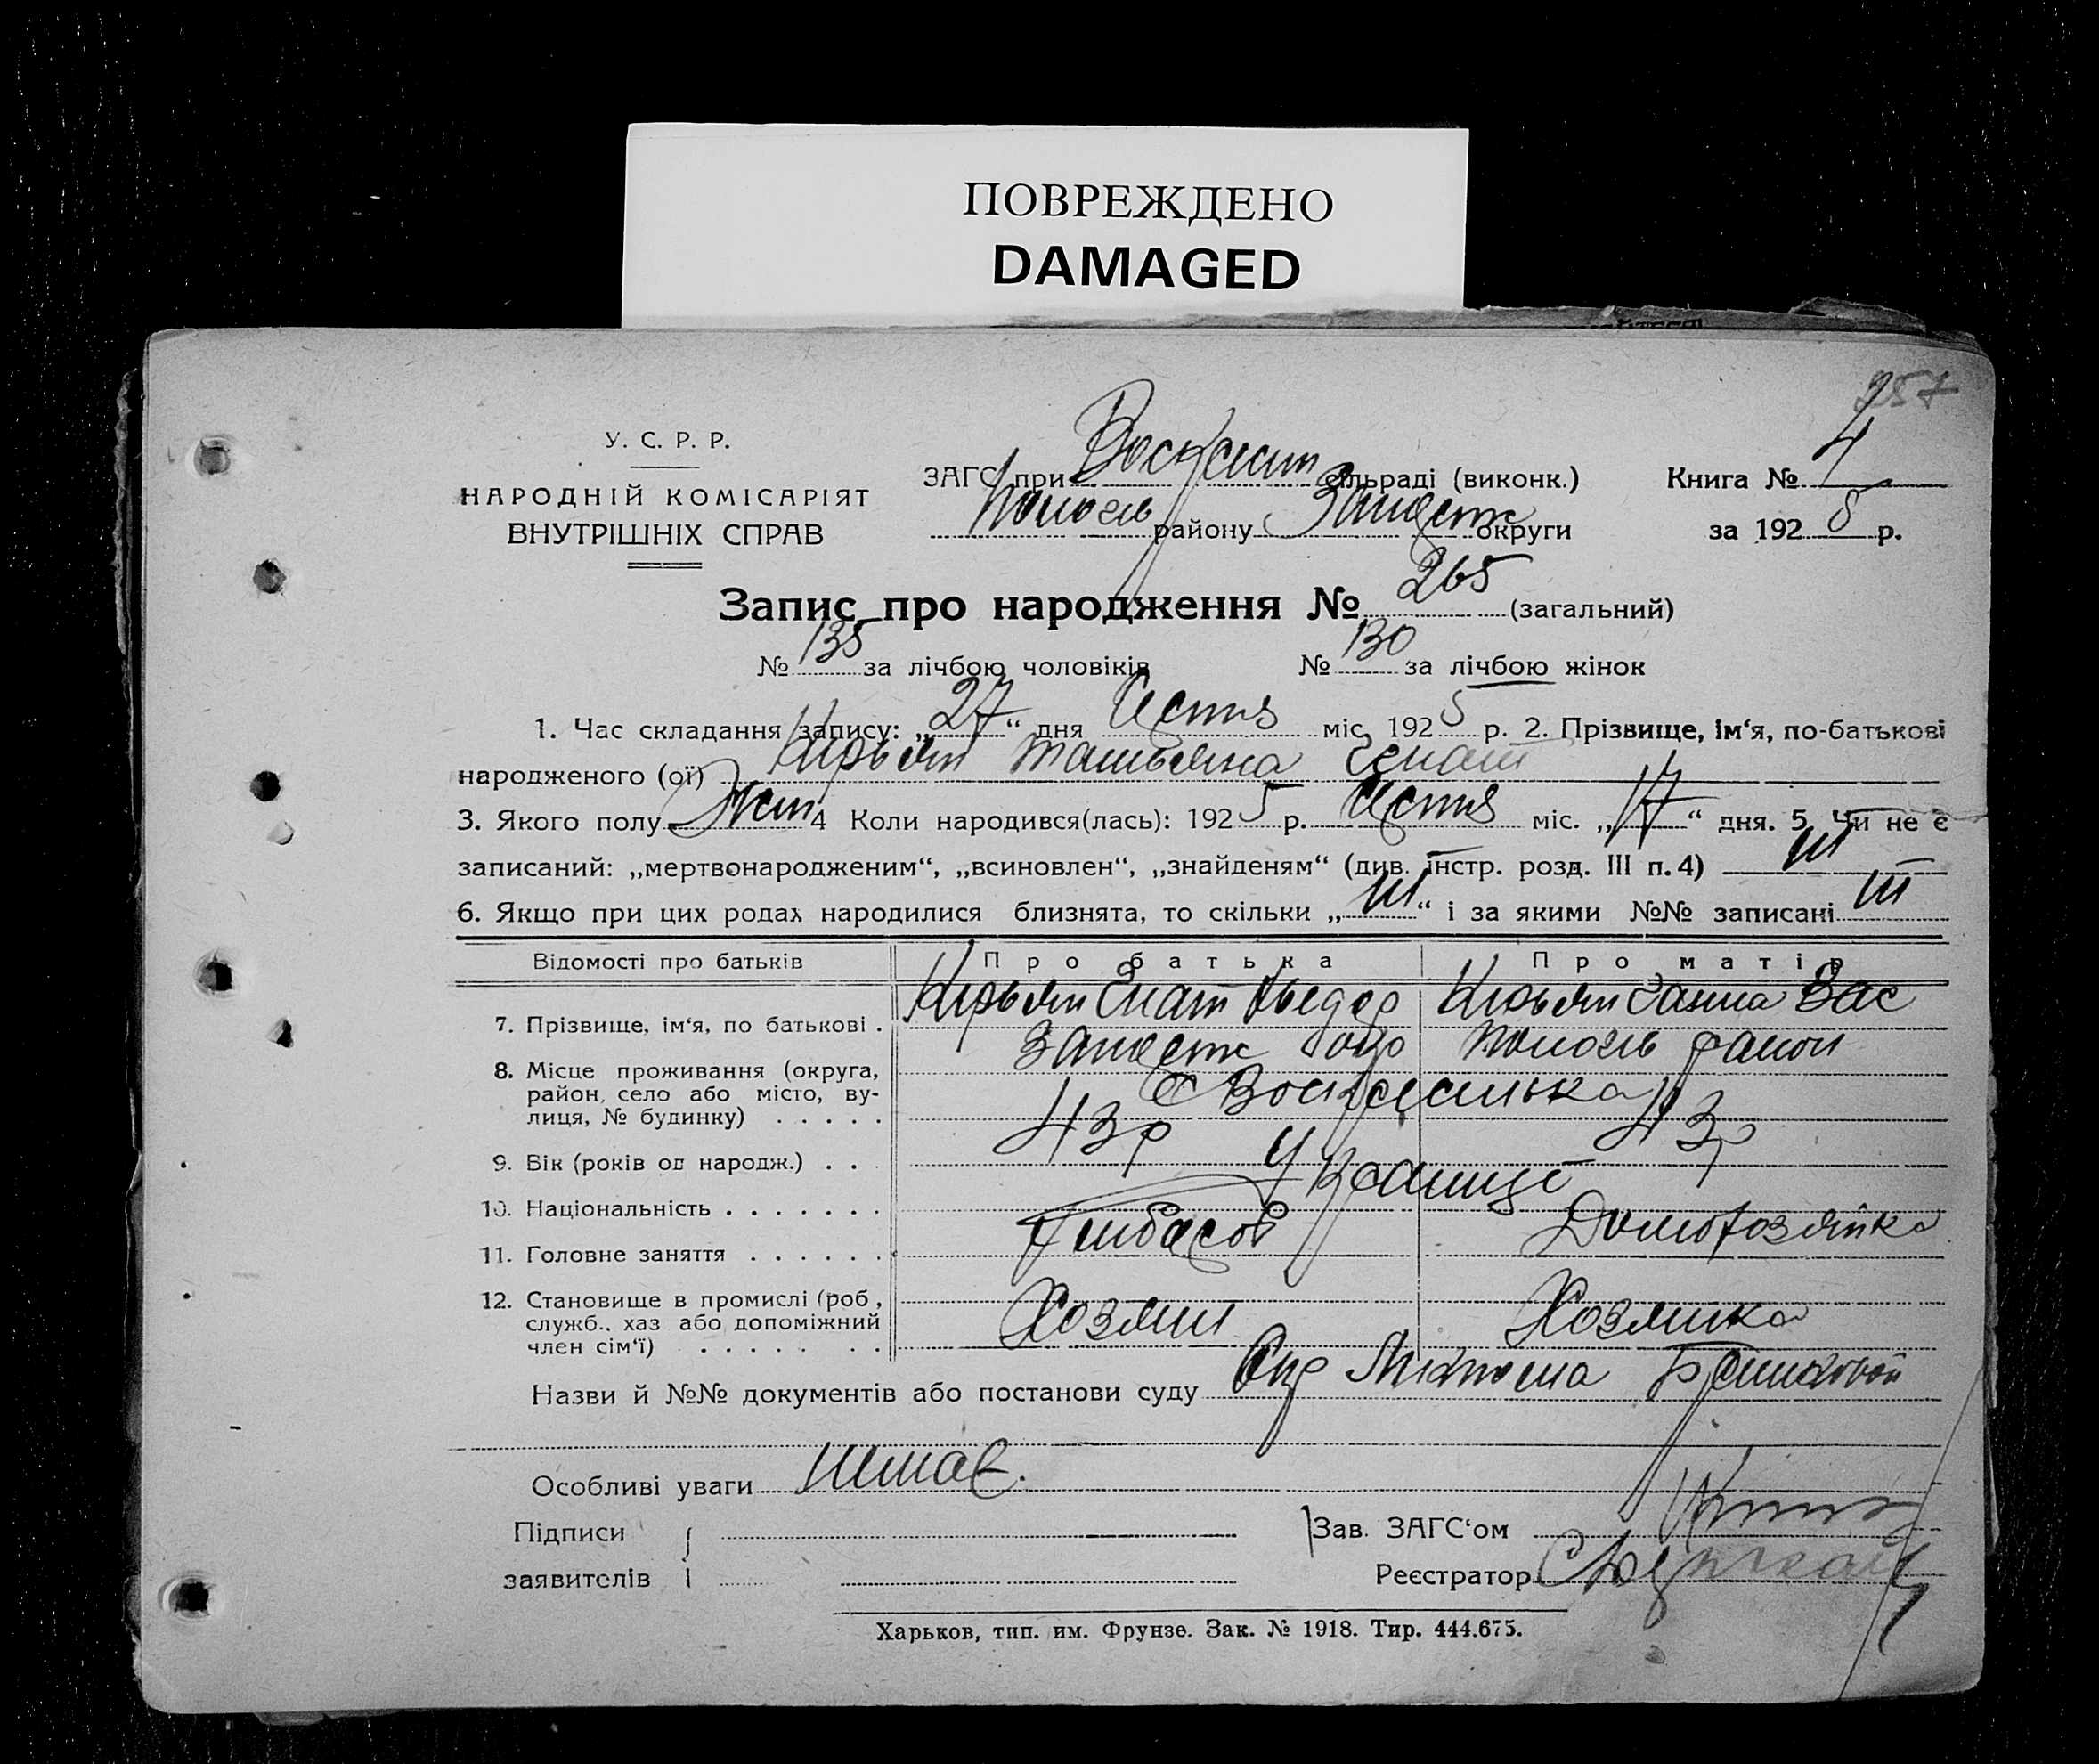 ПОВРЕЖДЕНО
DAMAGED
257
У. С. Р. Р.
НАРОДНІЙ КОМІСАРІЯТ
ВНУТРІШНІХ СПРАВ
ЗАГС при Воскресен сільраді (виконк.)
Пологів району Запоріж округи
Книга № 4
за 1925 р.
Запис про народження № 265 (загальний)
№ 135 за лічбою чоловіків № 130 за лічбою жінок
1. Час складання запису: „27“ дня міс. 1925 р. 2. Прізвище, ім‘я, по-батькові
народженого (ої) Кирьян Татьяна Гнат
3. Якого полу Жен 4 Коли народився(лась): 1925 р. міс. „17“ дня. 5. Чи не є
записаний: „мертвонародженим“, „всиновлен“, „знайденям“ (див. інстр. розд. III п. 4)
6. Якщо при цих родах народилися близнята, то скільки „ “ і за якими №№ записані
Відомості про батьків Про батька Про матір
7. Прізвище, ім‘я, по батькові . Кирьян Гнат Хведор Кирьян Ганна Вас
8. Місце проживання (округа, район, село або місто, вулиця, № будинку) . . . . . Запоріж Пологів район
с Воскресенька
9. Вік (років од народж.) . . . 43 р 43 р
10. Національність . . . . . . . Українці
11. Головне заняття . . . . . . Хлібороб Домохозяйка
12. Становище в промислі (роб., служб., хаз або допоміжний член сім‘ї) . . . . . . . Хозяин Хозяйка
Назви й №№ документів або постанови суду
Особливі уваги Немає.
Підписи
заявителів
Зав. ЗАГС‘ом
Реєстратор
Харьков, тип. им. Фрунзе. Зак. № 1918. Тир. 444.675.